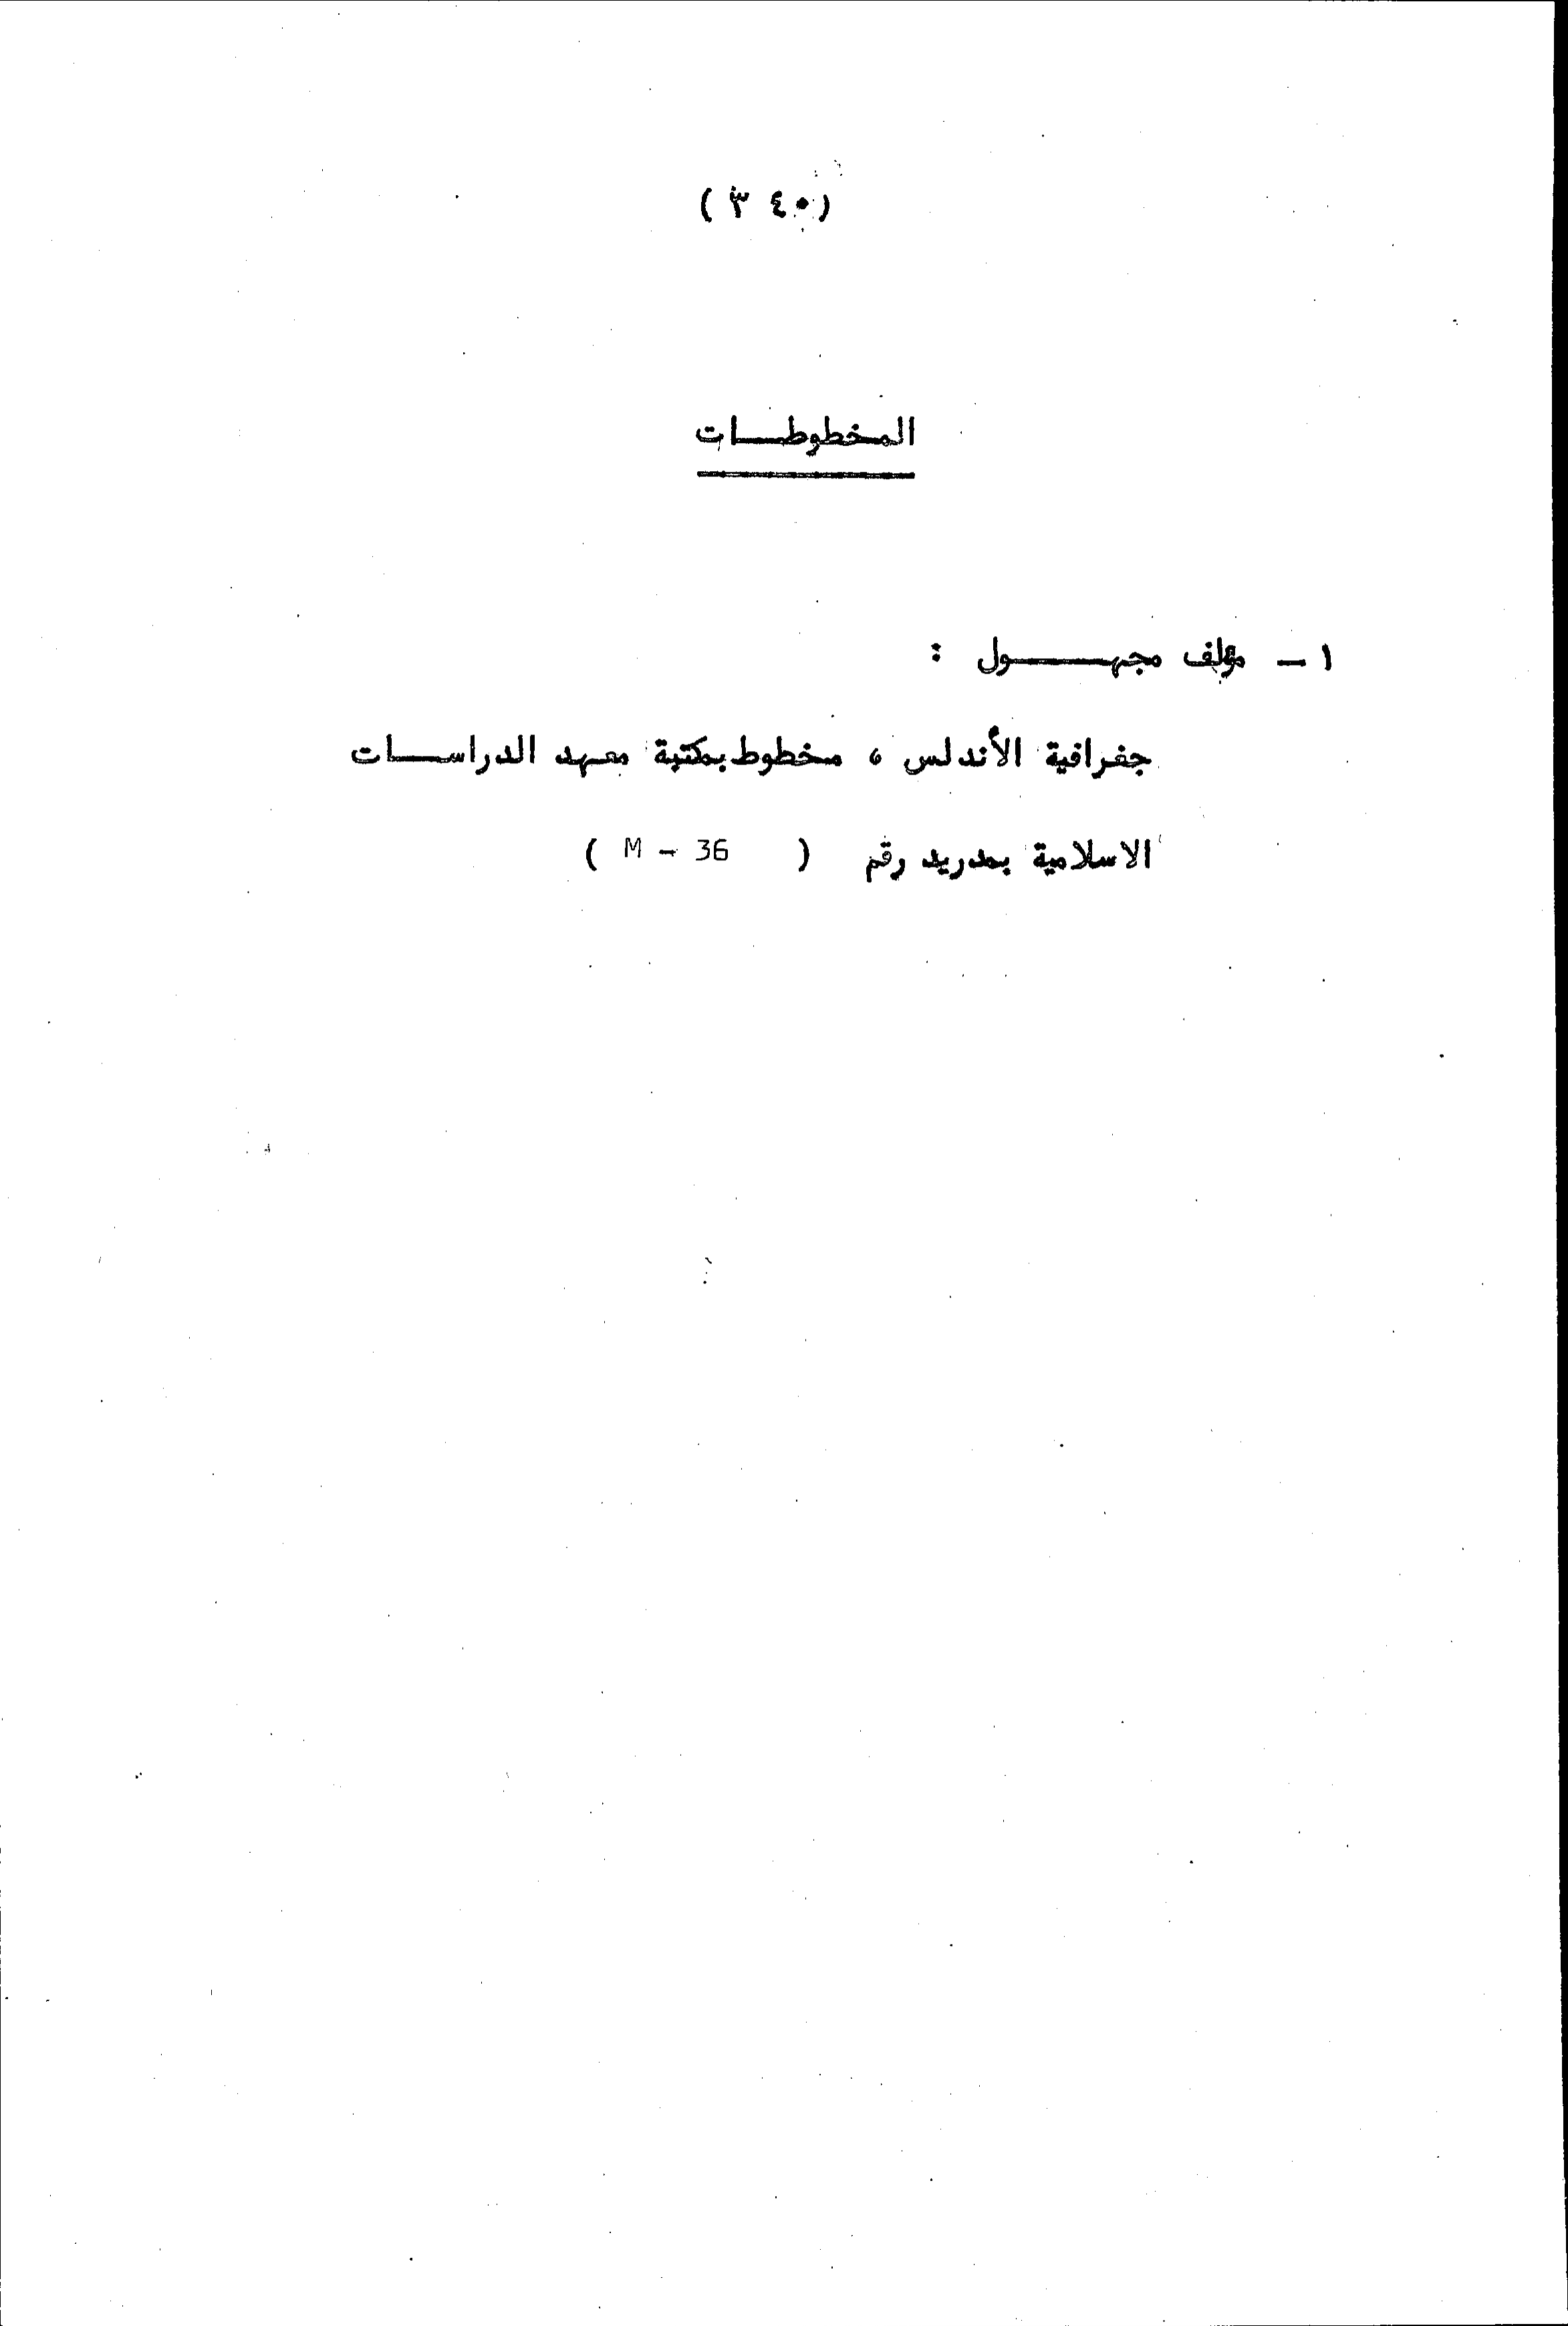 (٣٤٠)
المخطوطات
١ - مؤلف مجهول :
جغرافية الأندلس ، مخطوط بمكتبة معهد الدراسات
الاسلامية بمدريد رقم ( M - 36 )